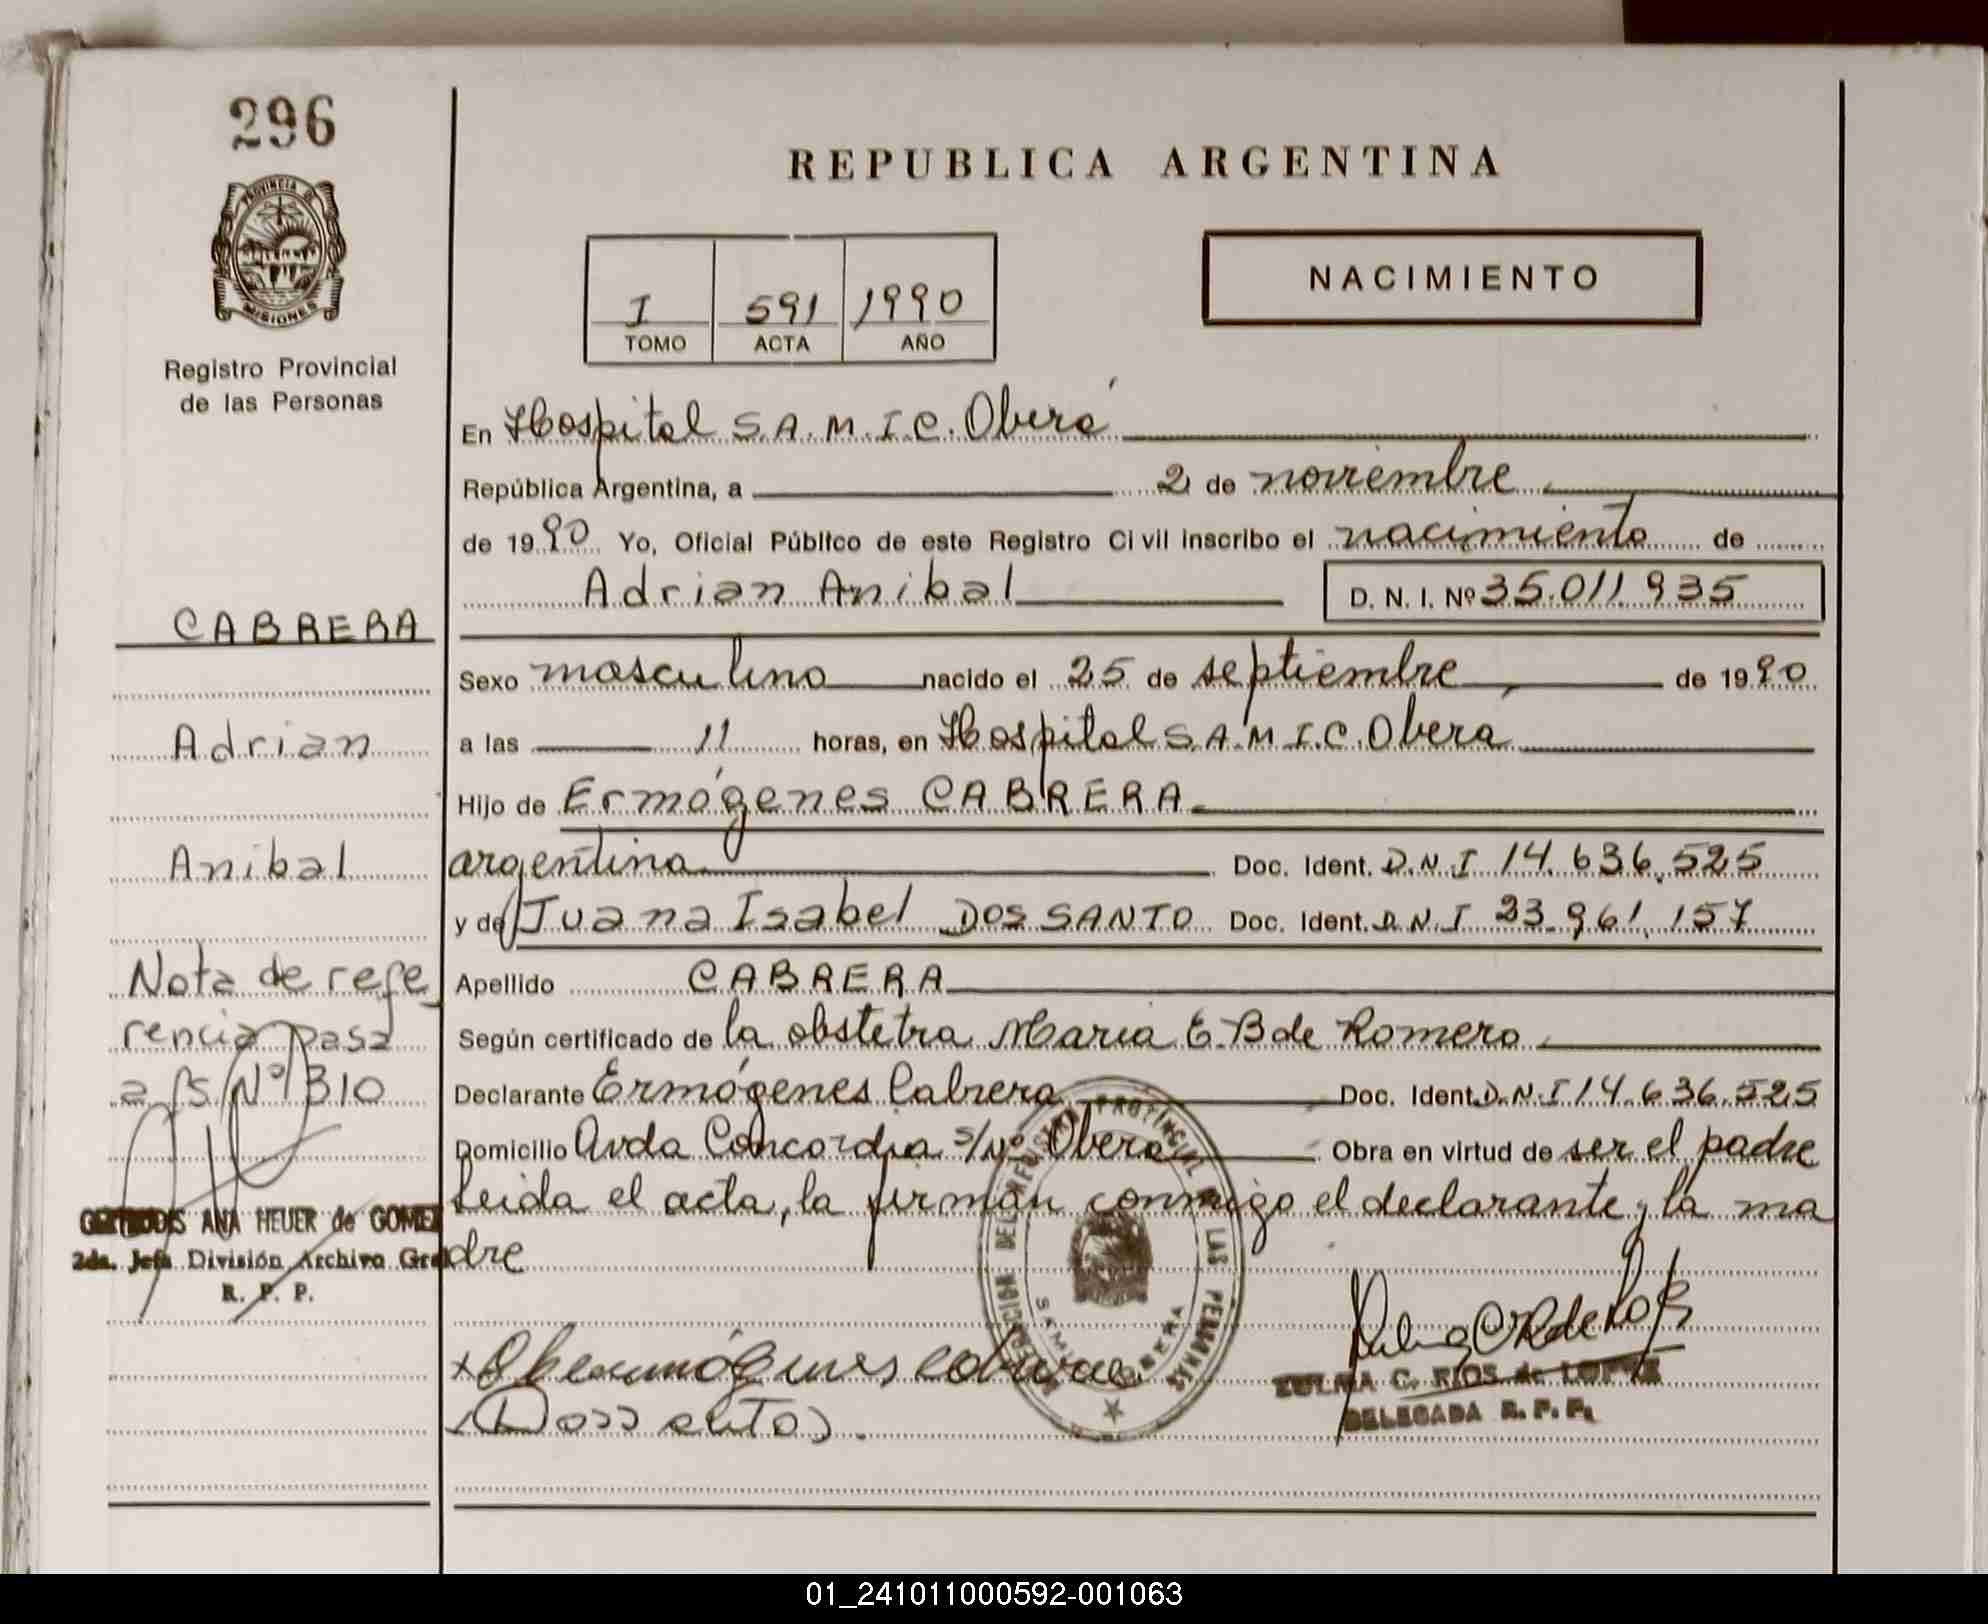 296
PROVINCIA DE
MISIONES
Registro Provincial
de las Personas
REPUBLICA ARGENTINA
I 591 1990
TOMO ACTA AÑO
NACIMIENTO
En Hospital S.A.M.I.C. Oberá
República Argentina, a 2 de noviembre
de 1990 Yo, Oficial Público de este Registro Civil inscribo el nacimiento de
Adrian Anibal D. N. I. Nº 35.011.935
CABRERA
Sexo masculino nacido el 25 de septiembre de 1990
Adrian
a las 11 horas, en Hospital S.A.M.I.C. Oberá
Hijo de Ermógenes CABRERA
Anibal
argentina Doc. Ident. D.N.I 14.636.525
y de Juana Isabel DOS SANTO Doc. Ident. D.N.I 23.961.157
Nota de refe
rencia pasa
a fs Nº 310
Apellido CABRERA
Según certificado de la obstetra Maria E. B de Romero
Declarante Ermógenes Cabrera Doc. Ident. D.N.I 14.636.525
Domicilio Avda Concordia s/nº Oberá Obra en virtud de ser el padre
Leida el acta, la firman conmigo el declarante y la ma
dre
GERTRUDIS ANA HEUER de GOMEZ
2da. Jefa División Archivo Gral
R. P. P.
DEL REGISTRO PROVINCIAL DE LAS PERSONAS
ZULMA C. RIOS de LOPEZ
DELEGADA R. P. P.
01_241011000592-001063